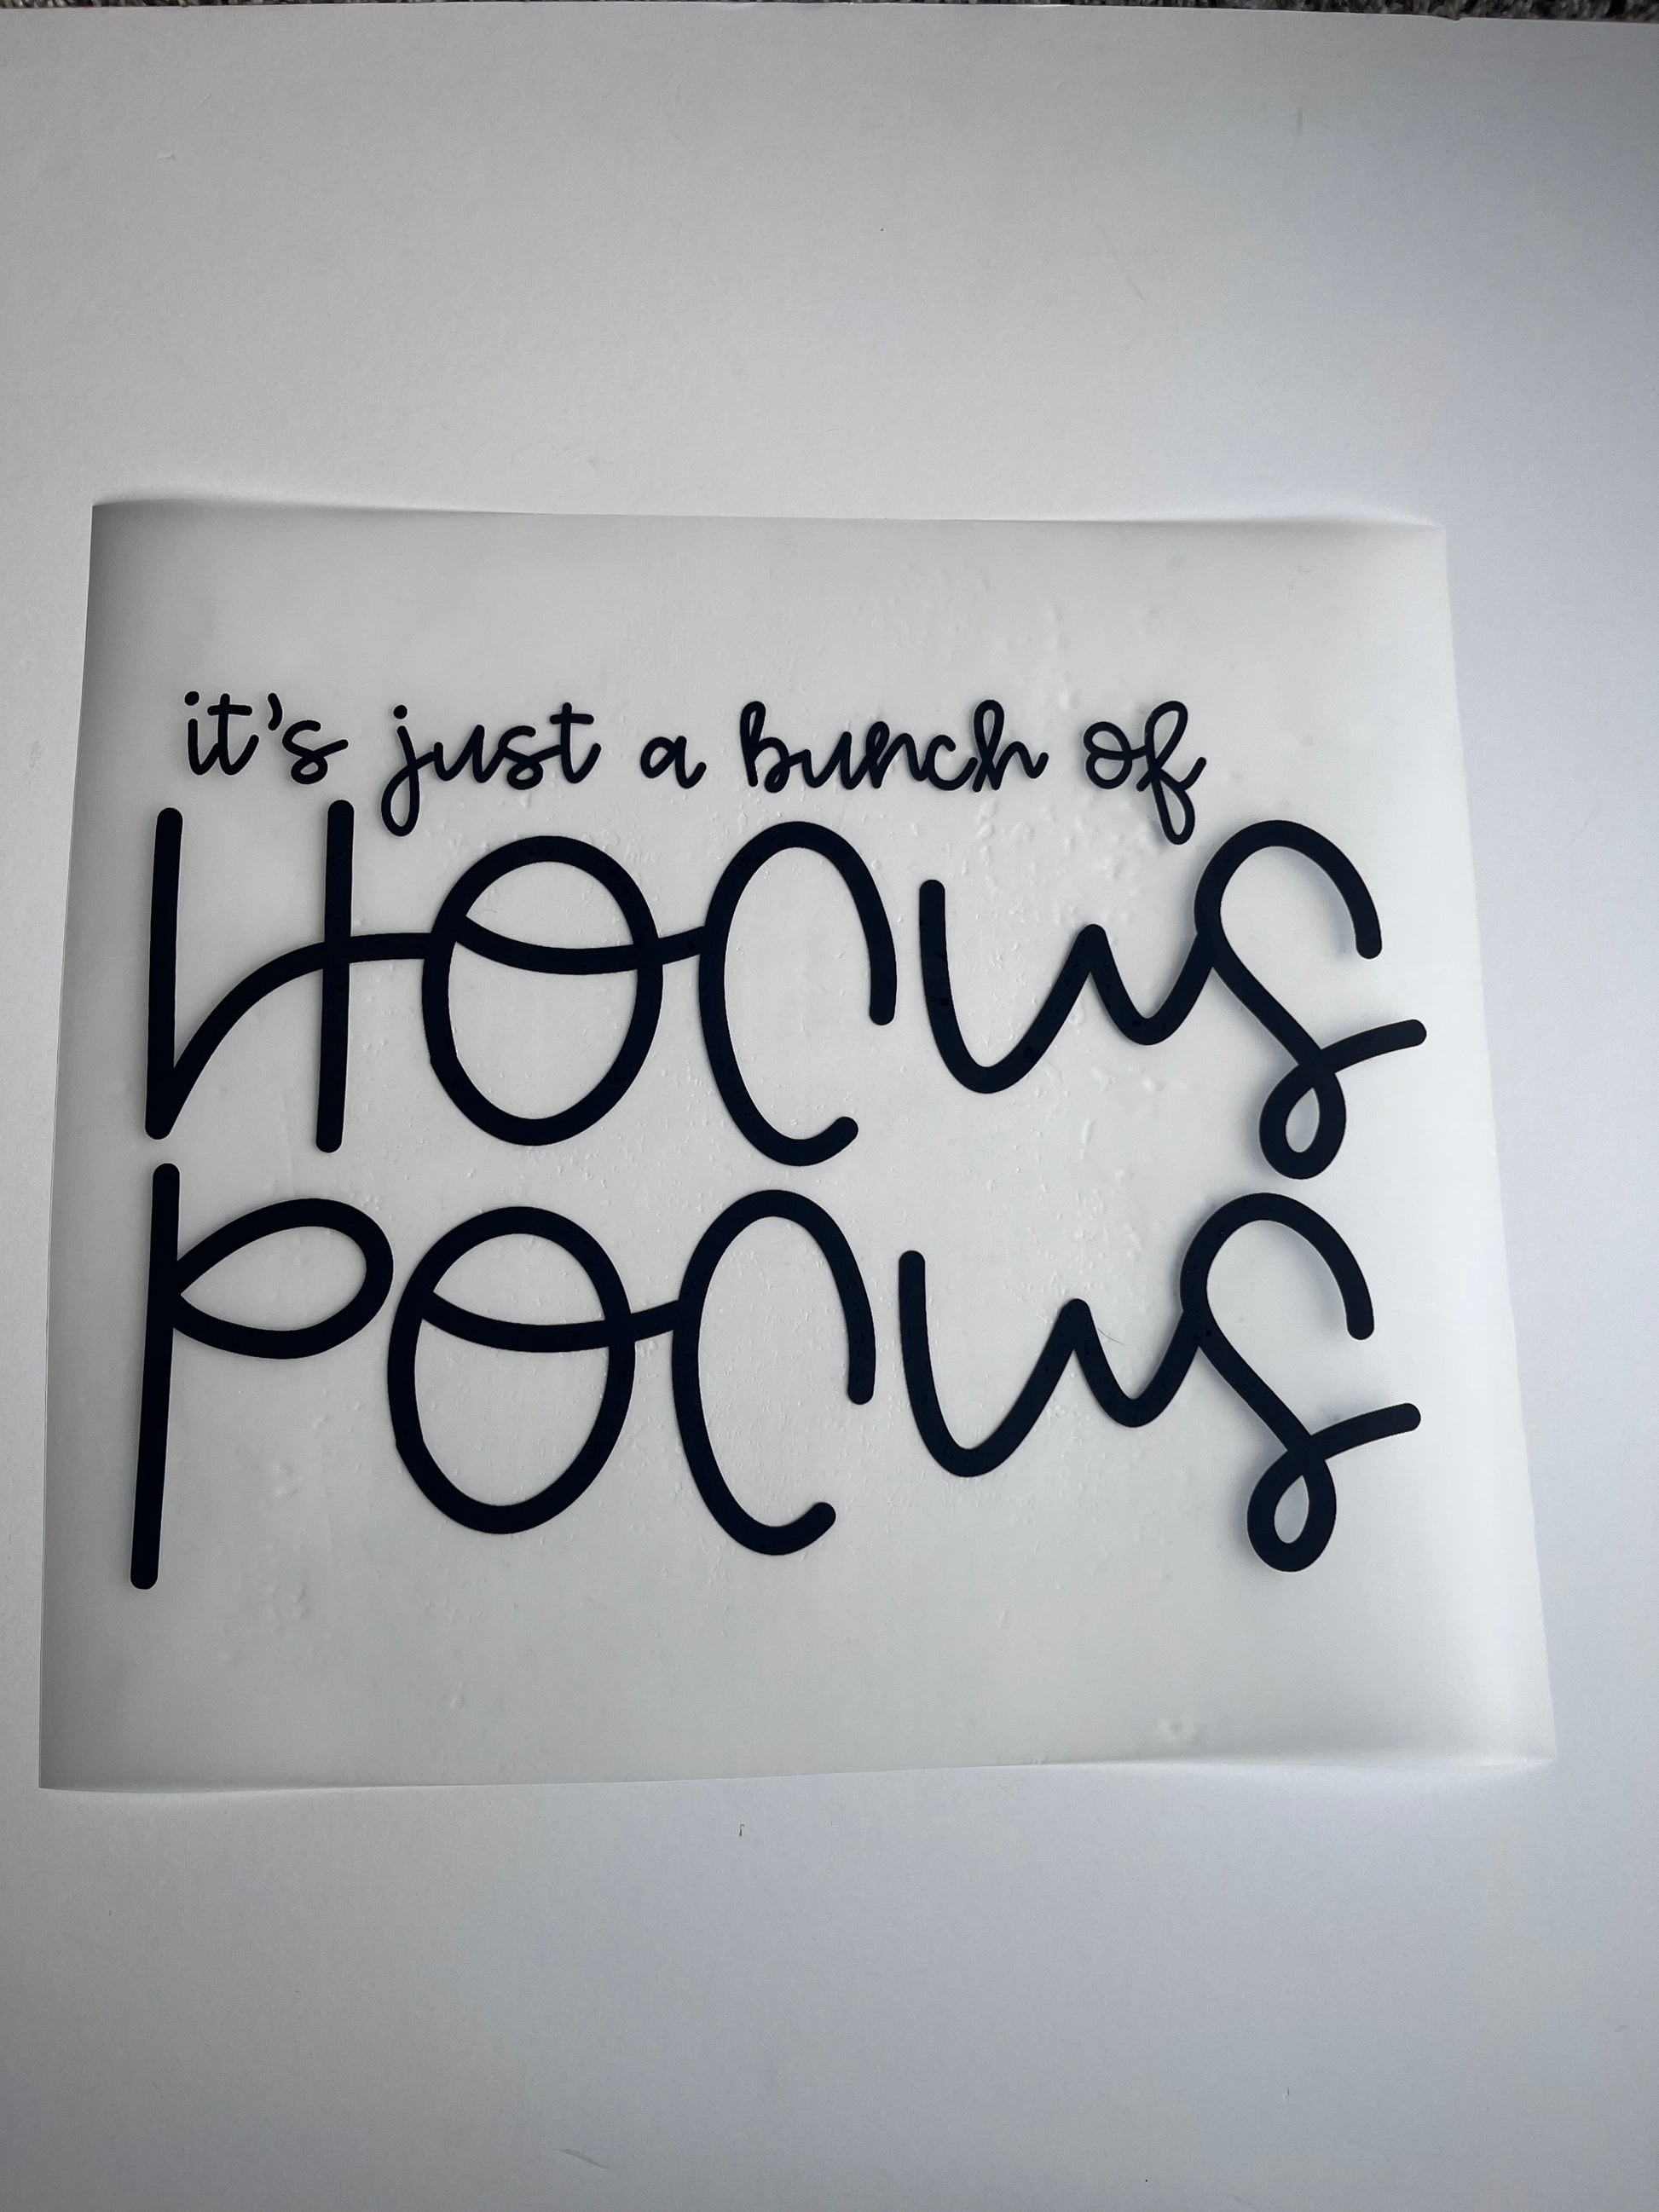 it's just a bunch of
HOCUS
POCUS